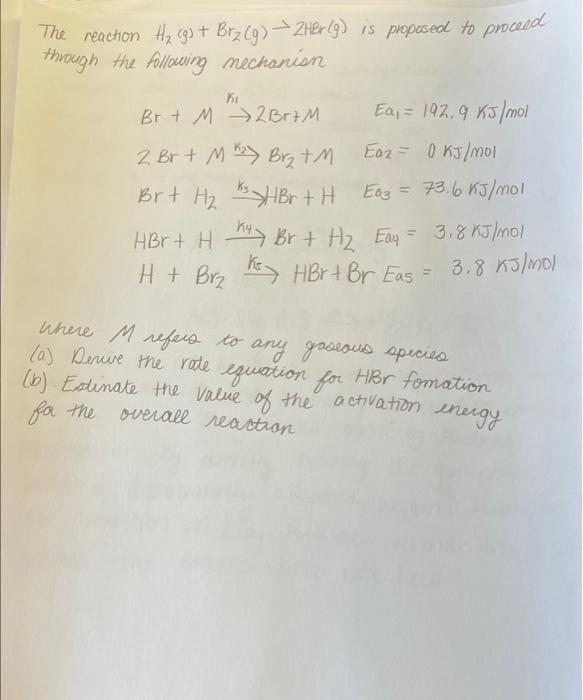 The reaction H₂(g) + Br₂(g) → 2HBr(g) is proposed to proceed
through the following mechanism
Br + M K1→ 2Br+M Ea₁ = 192.9 KJ/mol
2 Br + M K2→ Br₂ + M Ea2 = 0 KJ/mol
Br + H₂ K3→ HBr + H Ea3 = 73.6 KJ/mol
HBr + H K4→ Br + H₂ Ea4 = 3.8 KJ/mol
H + Br₂ K5→ HBr + Br Ea5 = 3.8 KJ/mol
where M refers to any gaseous species
(a) Derive the rate equation for HBr fomation
(b) Estinate the value of the activation energy
for the overall reaction